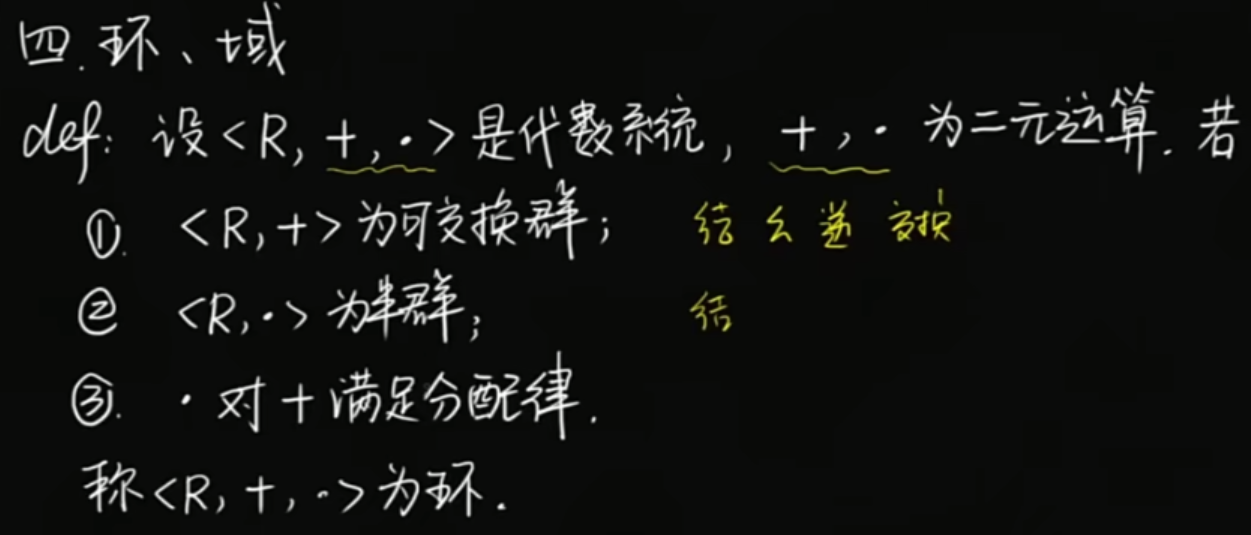 四.环、域
def: 设<R, +, ·>是代数系统, +, · 为二元运算. 若
①. <R, +>为可交换群; 结 幺 逆 交换
② <R, ·>为半群; 结
③. ·对+满足分配律.
称<R, +, ·>为环.